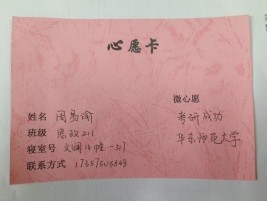 心愿卡
微心愿
姓名 周易谕
考研成功
班级 思政211
华东师范大学
寝室号 文澜14幢-517
联系方式